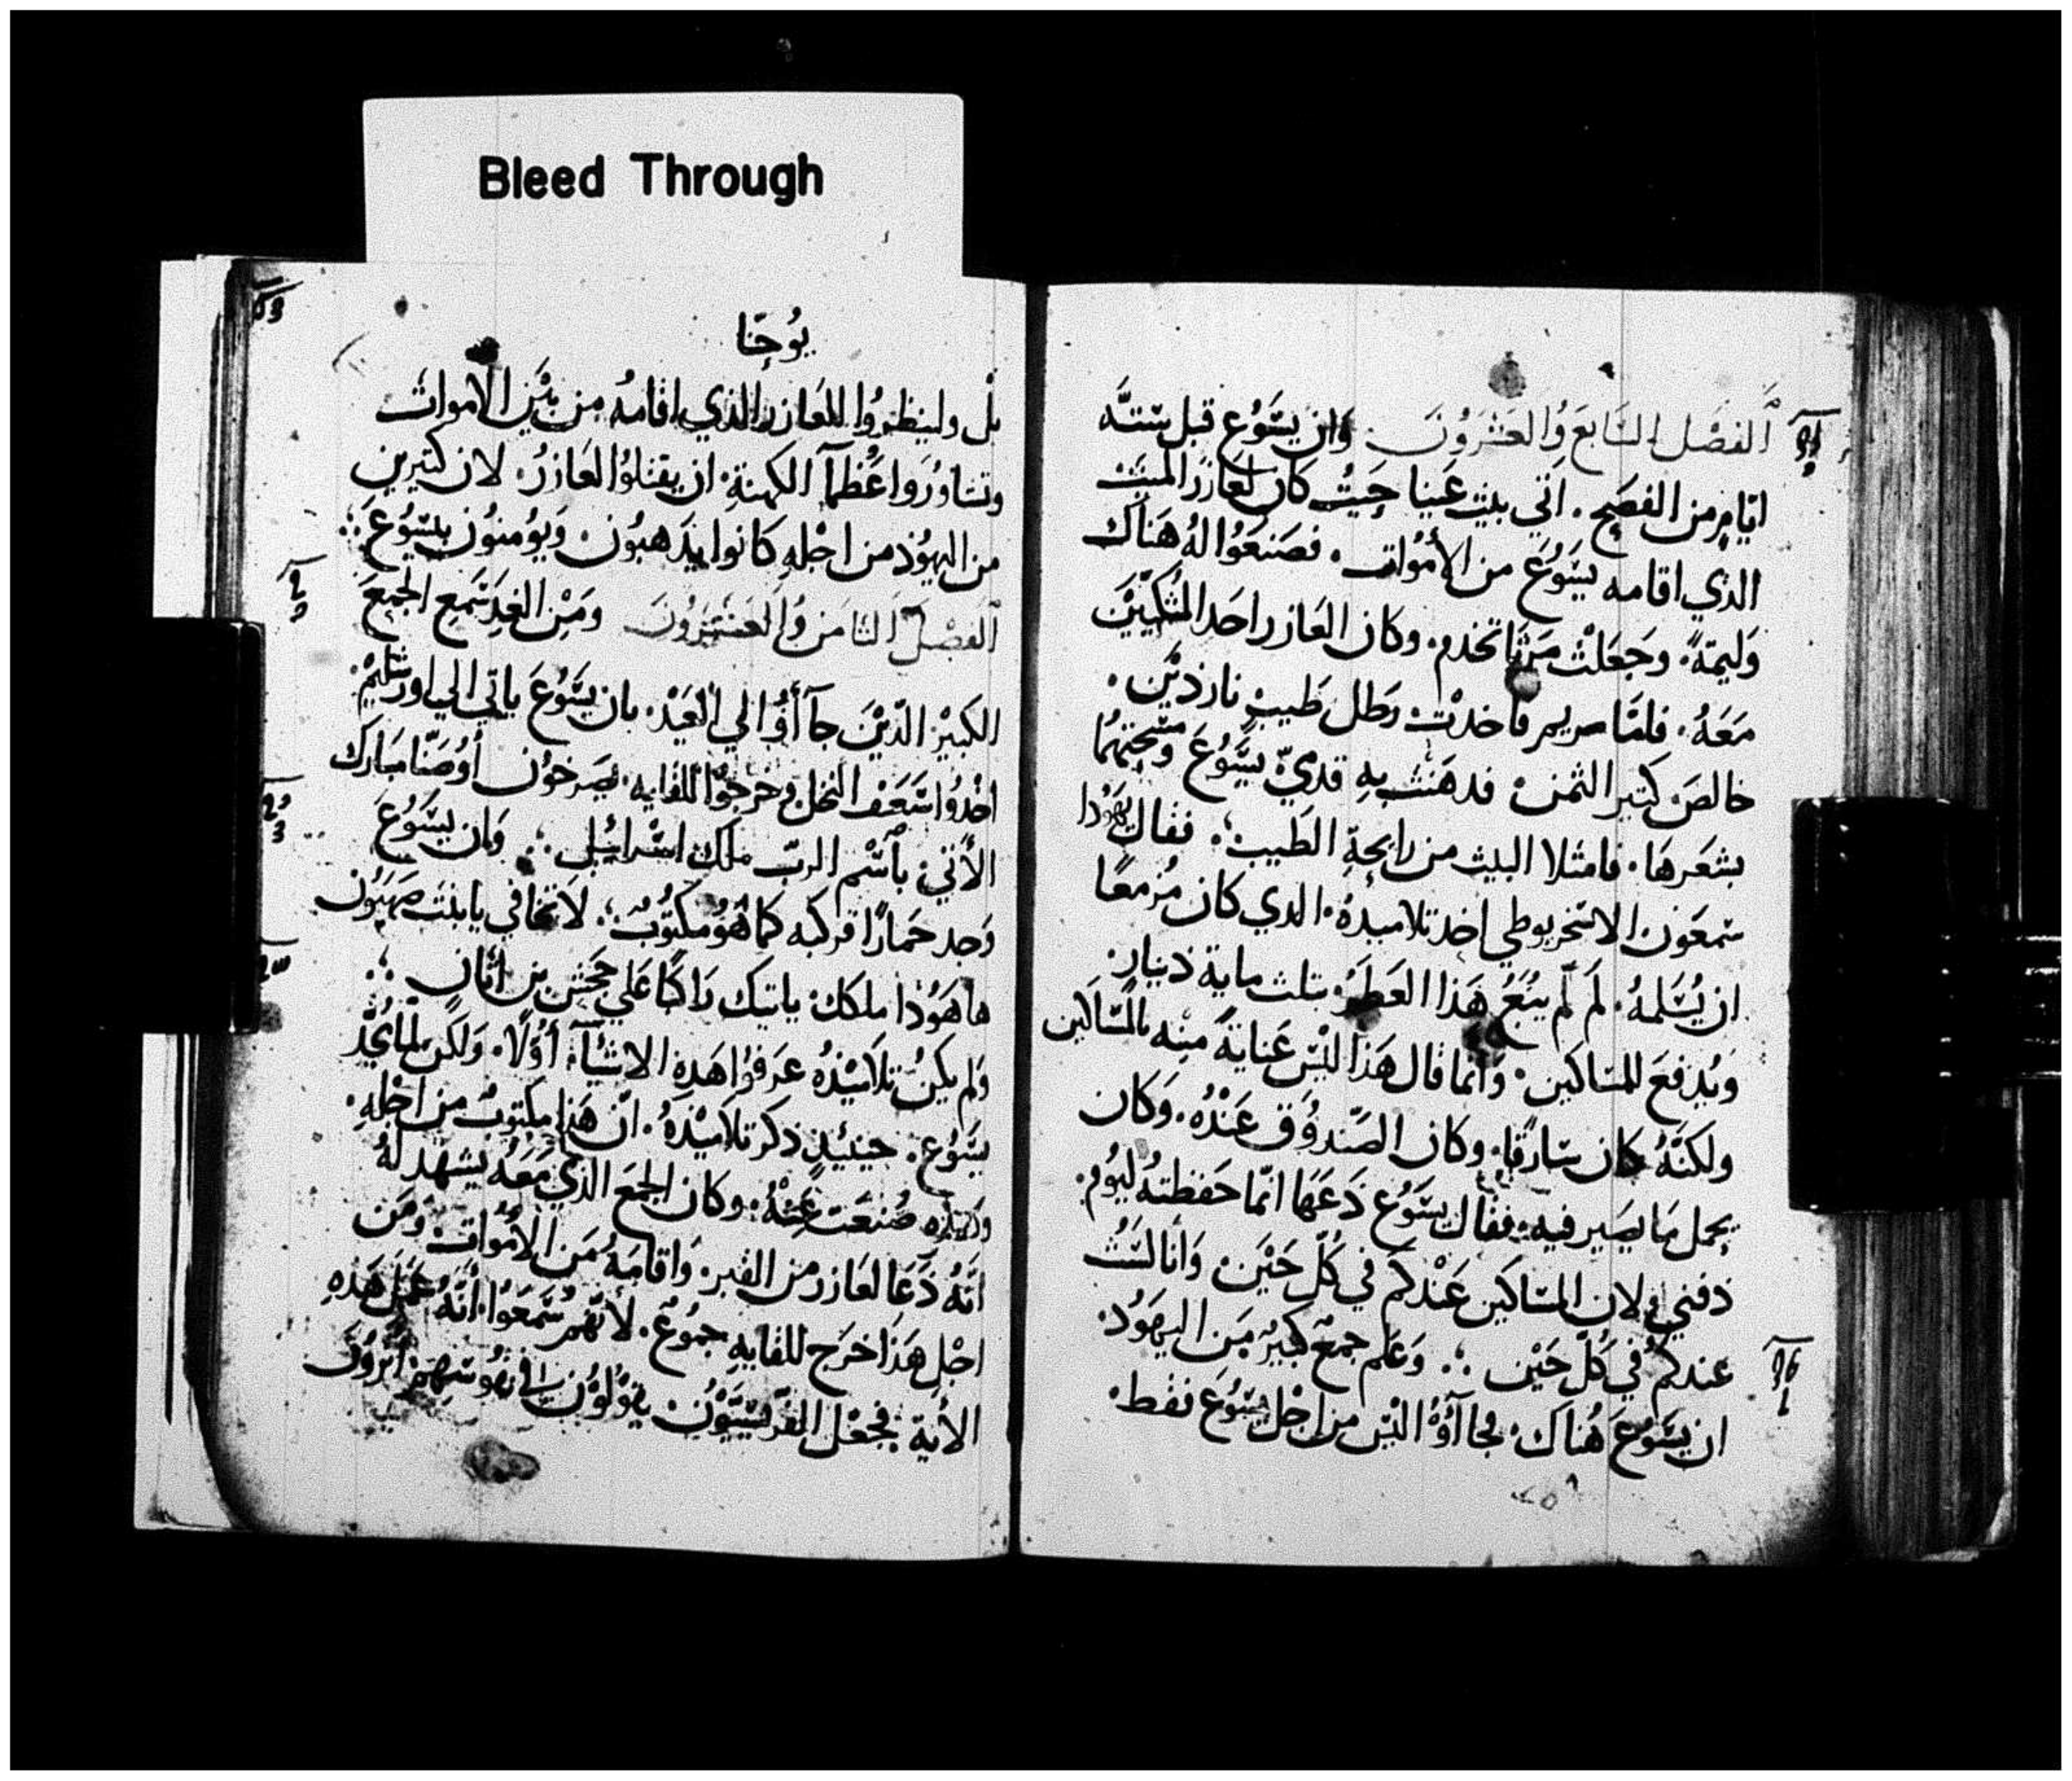 Bleed Through
الفصل السابع والعشرون وان يسوع قبل ستة
ايام من الفصح . اتي بيت عنيا حيث كان لعازر الميت
الذي اقامه يسوع من الأموات . فصنعوا له هناك
وليمة . وجعلت مرثا تخدم . وكان العازر احد المتكيين
معه . فلما مريم فاخدت رطل طيب ناردين .
خالص كتير الثمن . فدهنت به قدمي يسوع ومسحتهما
بشعرها . فامتلا البيت من رايحة الطيب ؛ فقال يهودا
سمعون الاسخريوطي احد تلاميده . الدي كان مزمعا
ان يسلمه . لم لم يبع هذا العطر بتلت ماية دينار .
ويدفع للمساكين . وانما قال هذا ليس عناية منه بالمساكين
ولكنه كان سارقا . وكان الصندوق عنده . وكان
يحمل ما يصير فيه . فقال يسوع دعها انما حفظته ليوم .
دفني . لان المساكين عندكم في كل حين . وانا لست
عندكم في كل حين ؛ . وعلم جمع كبير من اليهود .
ان يسوع هناك . فجاآؤا ليس من اجل يسوع فقط .
يوحنا
بل ولينظروا للعازر الذي اقامه من بين الأموات
وتشاوروا عظمآ الكهنة . ان يقتلوا العازر . لان كتيرين
من اليهود من اجله كانوا يذهبون . ويؤمنون بيسوع ؛
الفصل الثامن والعشرون ومن الغد سمع الجمع
الكبير الذين جآأؤا الي العيد . بان يسوع ياتي الي اورشليم .
اخدوا سعف النخل وخرجوا للقايه . يصرخون أوصنا مبارك
الأتي بأسم الرب ملك اسرائيل ؛ . وان يسوع
وجد حمارا فركبه كما هو مكتوب ؛ لا تخافي يا بنت صهيون
ها هودا ملكك ياتيك راكبا علي جحش بن اتان ؛
ولم يكن تلاميذه عرفوا هده الاشيآء أولا . ولكن لما مجد
يسوع . حينيد ذكر تلاميذه . ان هذا مكتوب من اجله .
وهذه صنعت عنه . وكان الجمع الذي معه يشهد له
انه دعا لعازر من القبر . واقامه من الأموات ومن
اجل هذا خرج للقايه جموع . لأنهم سمعوا انه عمل هذه
الأية . فجعل الفريسيون يقولون في نفوسهم اترون